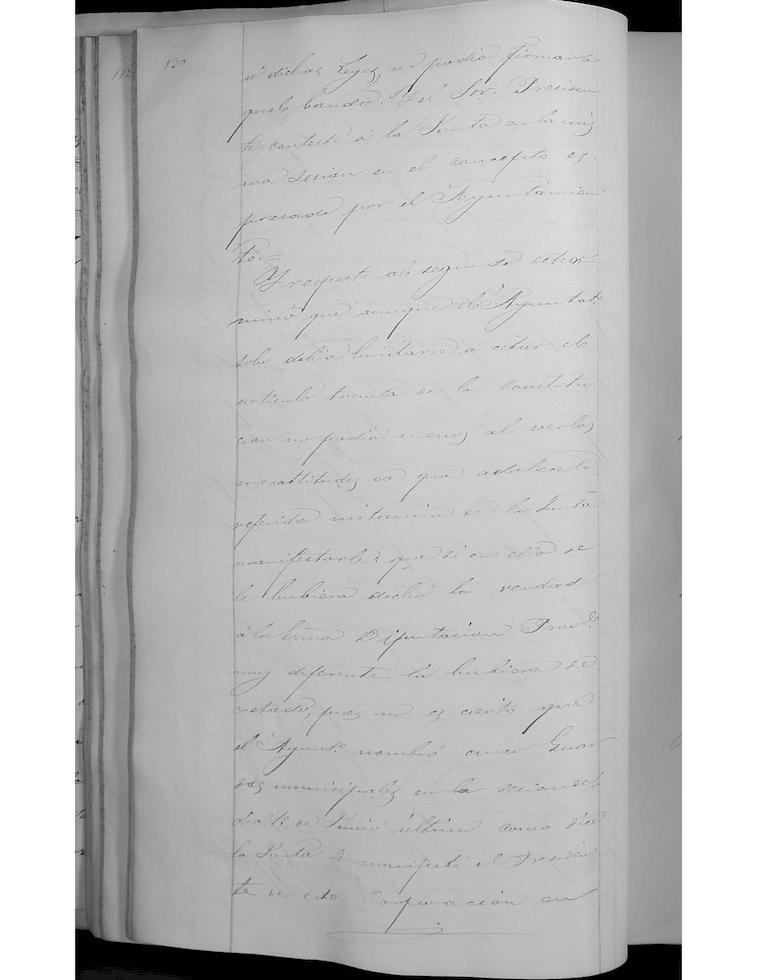 120
á dichas Leyes, no podia firmar a
quel bando. Y el Sor. Presiden
te contestó á la Junta en la mis
ma sesion en el concepto es-
presado por el Ayuntamien
to.=
Y respecto al segundo
que aunque el Ayuntato.
solo debia limitarse á citar el
articulo treinta de la Constitu
cion no podia menos al ver las
inexactitudes de que adolece la
referida de la Junta
manifestarle que si en ella se
le hubiera dicho la verdad
á la Exma Diputacion Provl.
muy diferente la hubiera de
cretado, pues no es cierto que
el Ayunto. nombró cinco Guar
das municipales en la sesion del
dia 1º de Junio último como dice
la Junta le manifestó el Presiden
te de esta Corporacion en